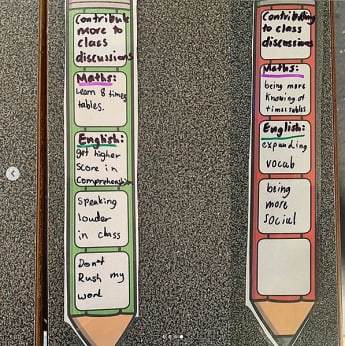 Contribute
more to
class
discussions
Maths:
Learn 8 times
tables.
English:
get higher
score in
comprehension
Speaking
louder
in class
Don't
Rush my
work
Contributing
to class
discussions
Maths:
being more
Knowing of
times tables
English:
expanding
vocab
being
more
social